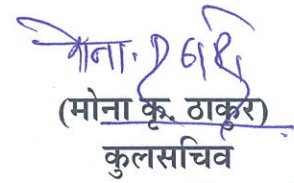 मोना.
(मोना कृ. ठाकुर)
कुलसचिव